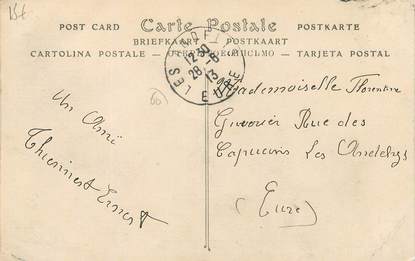 POST CARD Carte Postale POSTKARTE
BRIEFKAART POSTKAART
CARTOLINA POSTALE TARJETA POSTAL
12 30
28 - 6
13
LES
EURE
un Ami
Thiennest Ernest
Mademoiselle Florentine
Rue des
Capucins Les Andelys
(Eure)